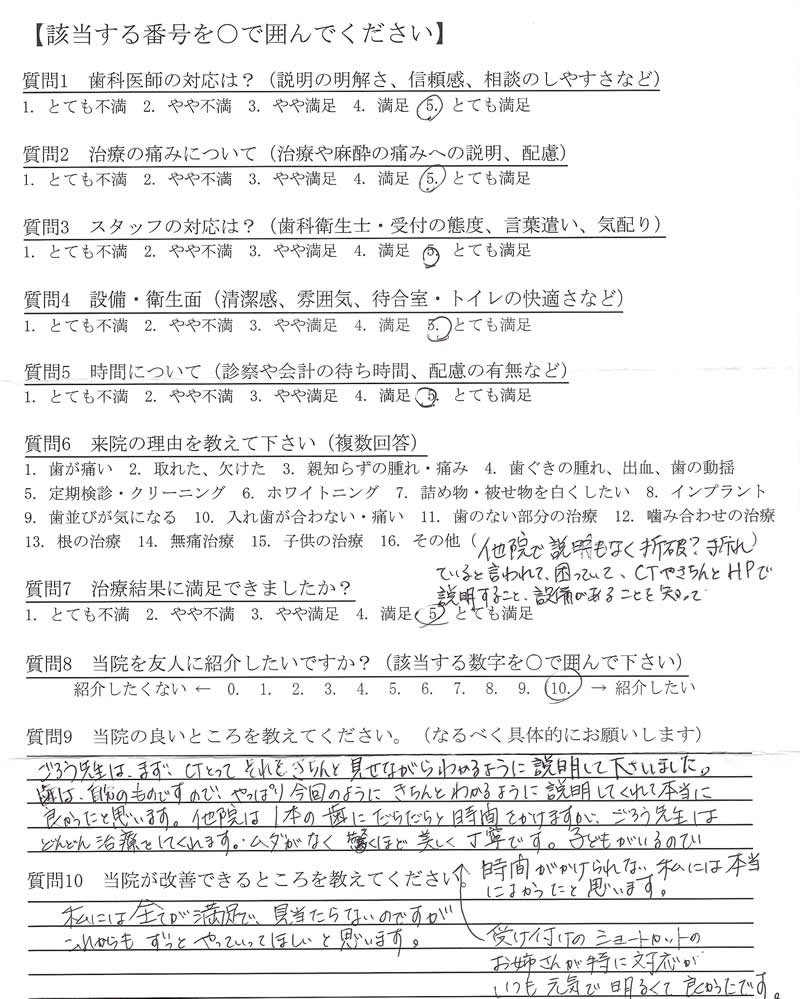 【該当する番号を〇で囲んでください】
質問1　歯科医師の対応は？（説明の明解さ、信頼感、相談のしやすさなど）
1. とても不満　2. やや不満　3. やや満足　4. 満足　5. とても満足
質問2　治療の痛みについて（治療や麻酔の痛みへの説明、配慮）
1. とても不満　2. やや不満　3. やや満足　4. 満足　5. とても満足
質問3　スタッフの対応は？（歯科衛生士・受付の態度、言葉遣い、気配り）
1. とても不満　2. やや不満　3. やや満足　4. 満足　5. とても満足
質問4　設備・衛生面（清潔感、雰囲気、待合室・トイレの快適さなど）
1. とても不満　2. やや不満　3. やや満足　4. 満足　5. とても満足
質問5　時間について（診察や会計の待ち時間、配慮の有無など）
1. とても不満　2. やや不満　3. やや満足　4. 満足　5. とても満足
質問6　来院の理由を教えて下さい（複数回答）
1. 歯が痛い　2. 取れた、欠けた　3. 親知らずの腫れ・痛み　4. 歯ぐきの腫れ、出血、歯の動揺
5. 定期検診・クリーニング　6. ホワイトニング　7. 詰め物・被せ物を白くしたい　8. インプラント
9. 歯並びが気になる　10. 入れ歯が合わない・痛い　11. 歯のない部分の治療　12. 噛み合わせの治療
13. 根の治療　14. 無痛治療　15. 子供の治療　16. その他（他院で説明もなく折破？折れ
ていると言われて、困っていて、CTやきちんとHPで
説明すること、設備があることを知って
質問7　治療結果に満足できましたか？
1. とても不満　2. やや不満　3. やや満足　4. 満足　5. とても満足
質問8　当院を友人に紹介したいですか？（該当する数字を〇で囲んで下さい）
紹介したくない ← 0. 1. 2. 3. 4. 5. 6. 7. 8. 9. 10. → 紹介したい
質問9　当院の良いところを教えてください。（なるべく具体的にお願いします）
ごろう先生は、まず、CTとって それをきちんと見せながらわかるように説明して下さいました。
歯は、自分のものですので、やっぱり今回のように きちんとわかるように説明してくれて本当に
良かったと思います。他院は1本の歯にだらだらと時間をかけますが、ごろう先生は
どんどん治療をしてくれます。ムダがなく 驚くほど美しく丁寧です。子どもがいるので
時間がかけられない 私には本当
によかったと思います。
受け付けのショートカットの
お姉さんが特に対応が
いつも元気で明るくて良かったです。
質問10　当院が改善できるところを教えてください。
私には全てが満足で、見当たらないのですが
これからも ずっとやっていってほしいと思います。